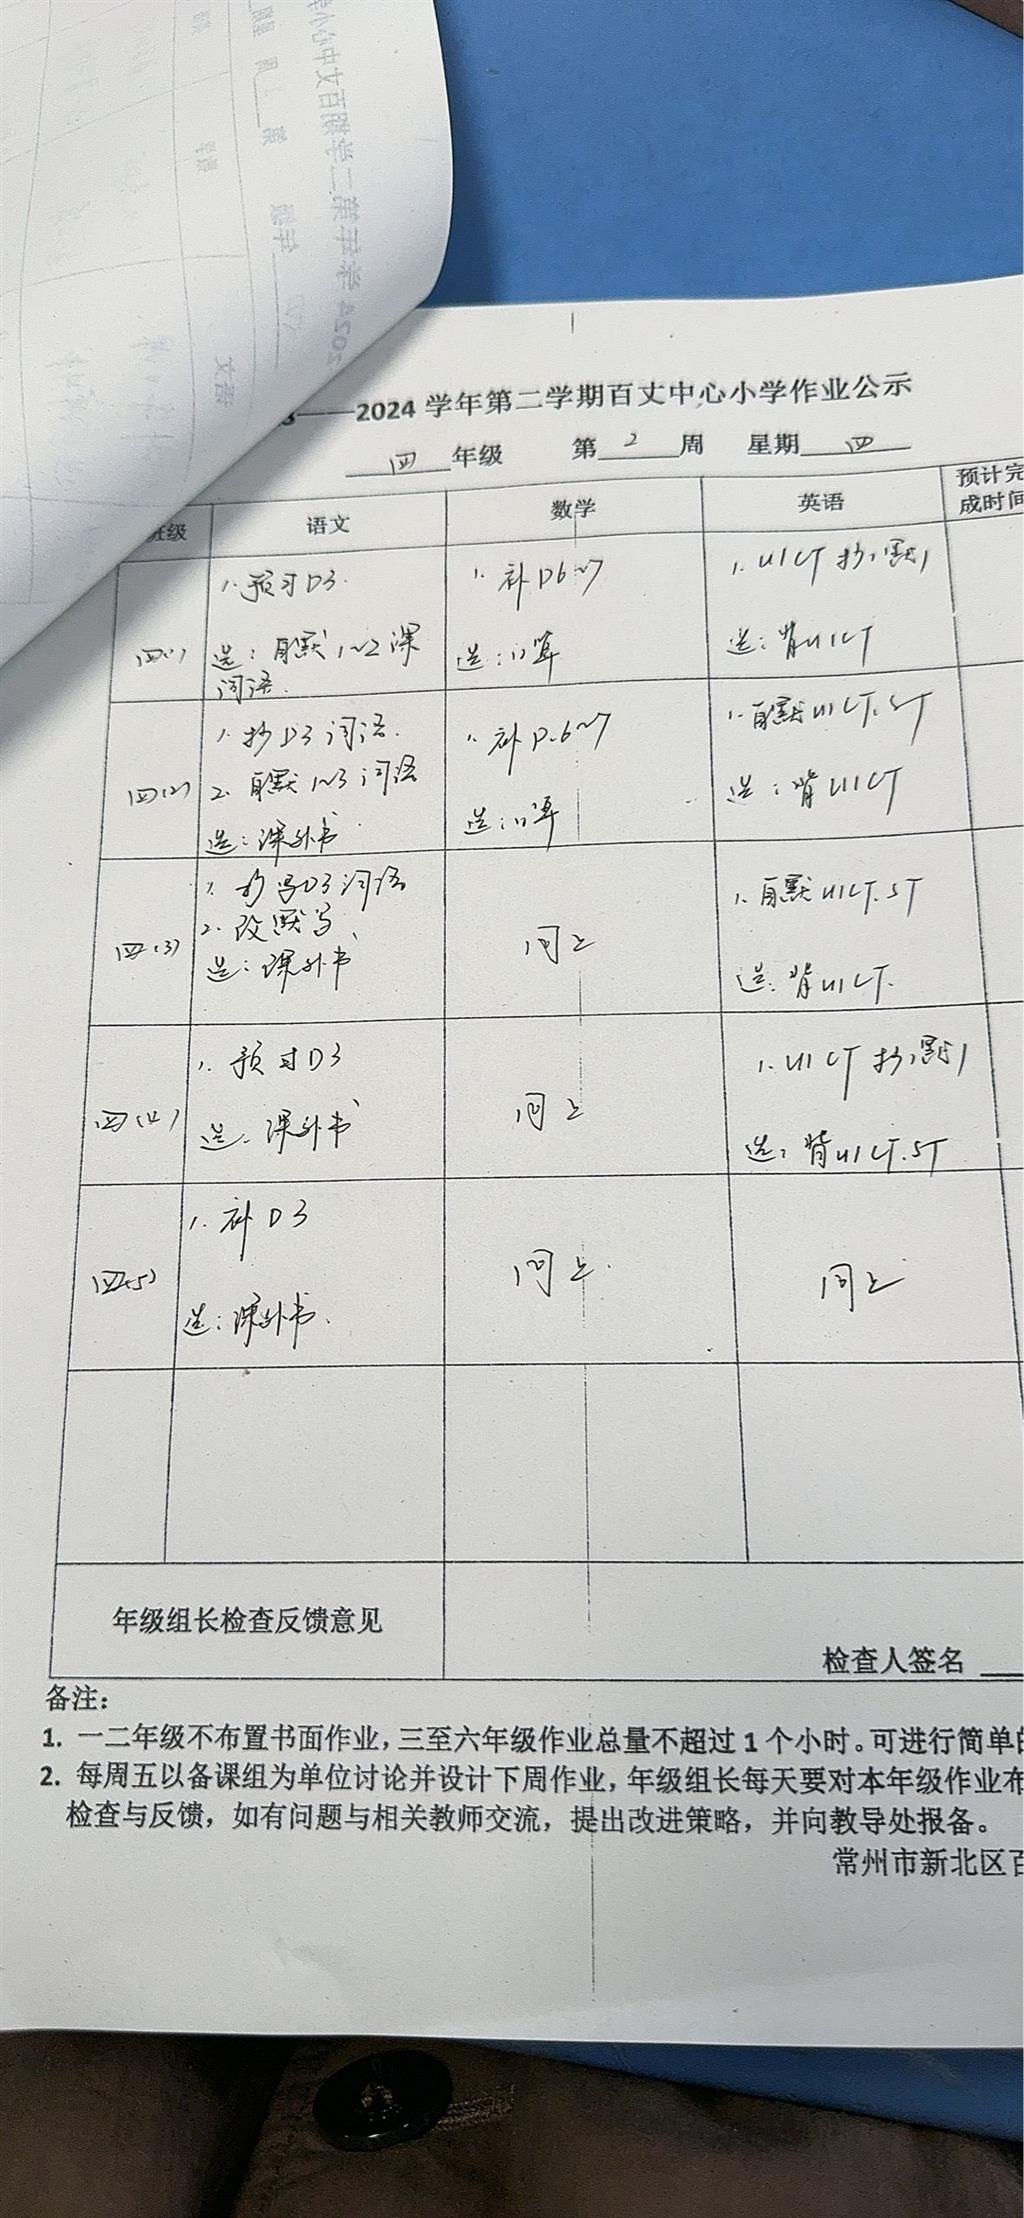 ——2024 学年第二学期百丈中心小学作业公示
四 年级 第 2 周 星期 四
班级 语文 数学 英语 预计完
成时间
四(1)
1. 预习D3.
选：自默1~2课
词语.
1. 补P6~7
选：口算
1. U1CT 抄1默1
选：背U1CT
四(2)
1. 抄D3词语.
2. 自默1~3词语
选：课外书.
1. 补P.6~7
选：口算
1. 自默U1CT.ST
选：背U1CT
四(3)
1. 抄写D3词语
2. 改默写
选：课外书
同上
1. 自默U1CT.ST
选：背U1CT.
四(4)
1. 预习D3
选. 课外书
同上
1. U1CT 抄1默1
选：背U1CT.ST
四(5)
1. 补D3
选：课外书.
同上.
同上
年级组长检查反馈意见
检查人签名
备注：
1. 一二年级不布置书面作业，三至六年级作业总量不超过 1 个小时。可进行简单
2. 每周五以备课组为单位讨论并设计下周作业，年级组长每天要对本年级作业布
检查与反馈，如有问题与相关教师交流，提出改进策略，并向教导处报备。
常州市新北区百